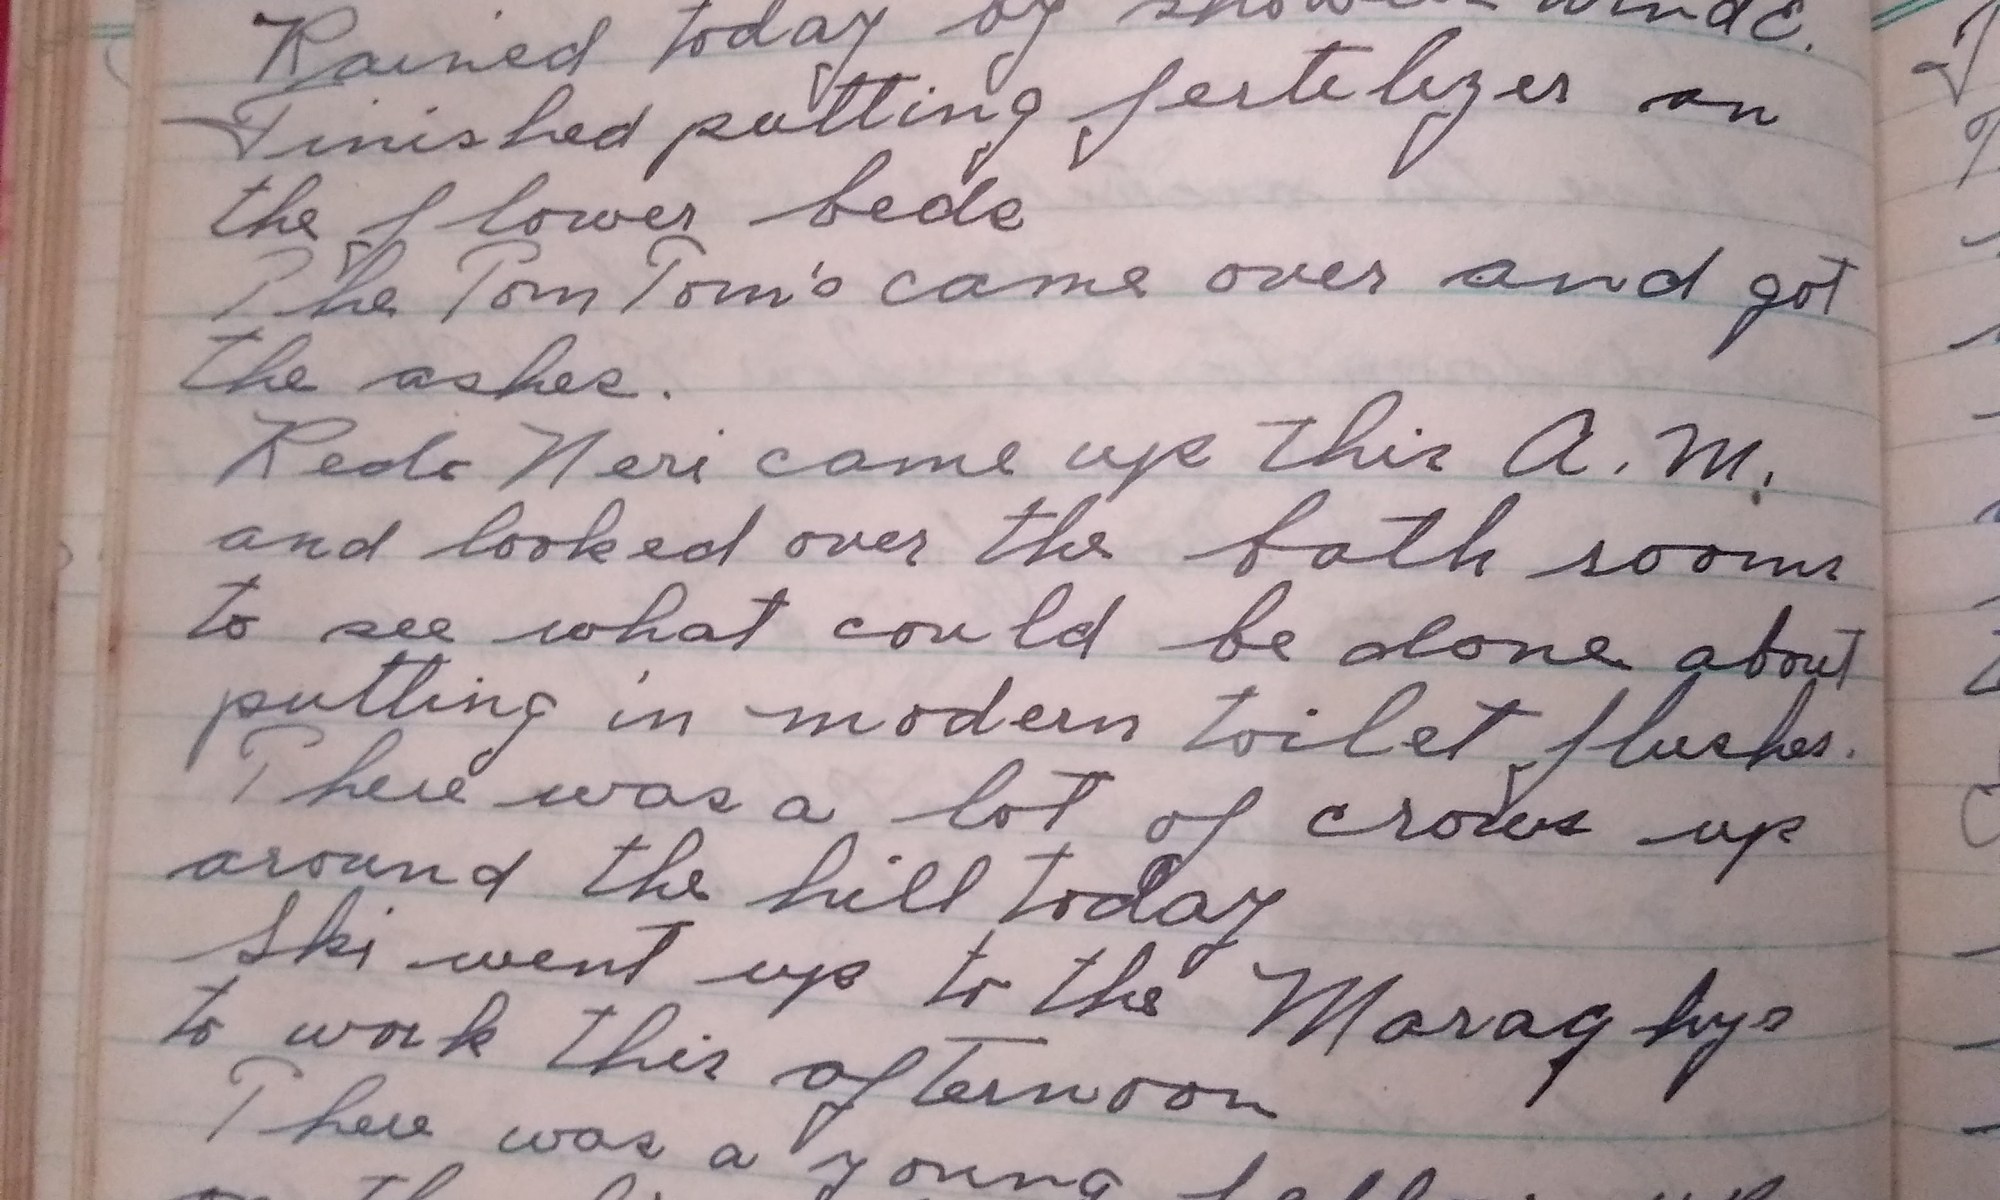 Rained today by showers winds.
Finished putting fertelizer on
the flower beds
The Tom Tom's came over and got
the ashes.
Neri came up this A.M.
and looked over the bath rooms
to see what could be done about
putting in modern toilet flushes.
There was a lot of crows up
around the hill today
Ski went up to the Maraghys
to work this afternoon
There was a young